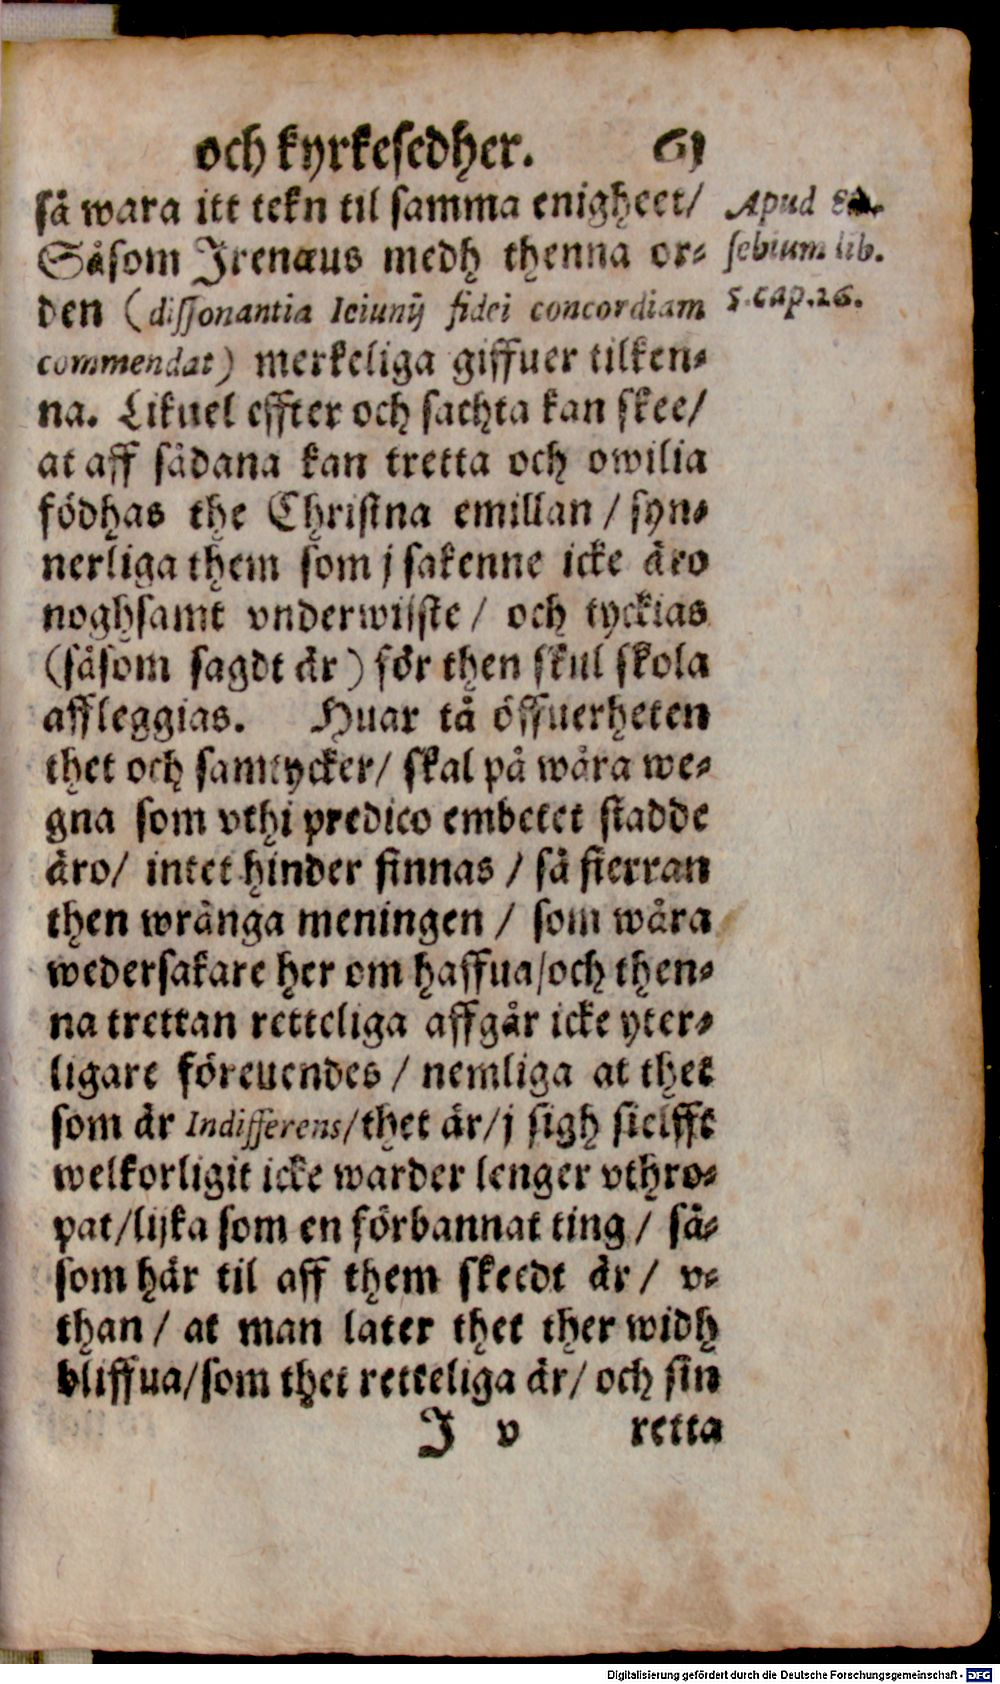 och kyrkesedher. 61
så wara itt tekn til samma enigheet/
Såsom Irenæus medh thenna or-
den (dissonantia Ieiunij fidei concordiam
commendat) merkeliga giffuer tilken-
na. Likuel effter och sachta kan skee/
at aff sådana kan tretta och owilia
födhas the Christna emillan / syn-
nerliga them som j sakenne icke äro
noghsamt vnderwijste / och tyckias
(såsom sagdt är) för then skul skola
affleggias. Huar tå öffuerheten
thet och samtycker/ skal på wåra we-
gna som vthi predico embetet stadde
äro/ intet hinder finnas / så fierran
then wränga meningen / som wåra
wedersakare her om haffua/och then-
na trettan retteliga affgår icke yter-
ligare föreuendes / nemliga at thet
som är Indifferens/thet är/j sigh sielfft
welkorligit icke warder lenger vthro-
pat/lijka som en förbannat ting / så-
som här til aff them skeedt är / v-
than / at man later thet ther widh
bliffua/som thet retteliga är/ och sin
I v retta
Apud Eu-
sebium lib.
5. cap. 26.
Digitalisierung gefördert durch die Deutsche Forschungsgemeinschaft - DFG